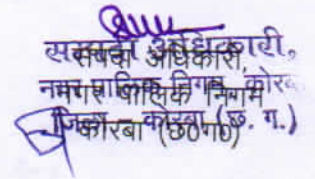 सम्पदा अधिकारी,
नगर पालिक निगम, कोरबा
जिला - कोरबा (छ. ग.)
संपदा अधिकारी
नगर पालिक निगम
कोरबा (छ0ग0)